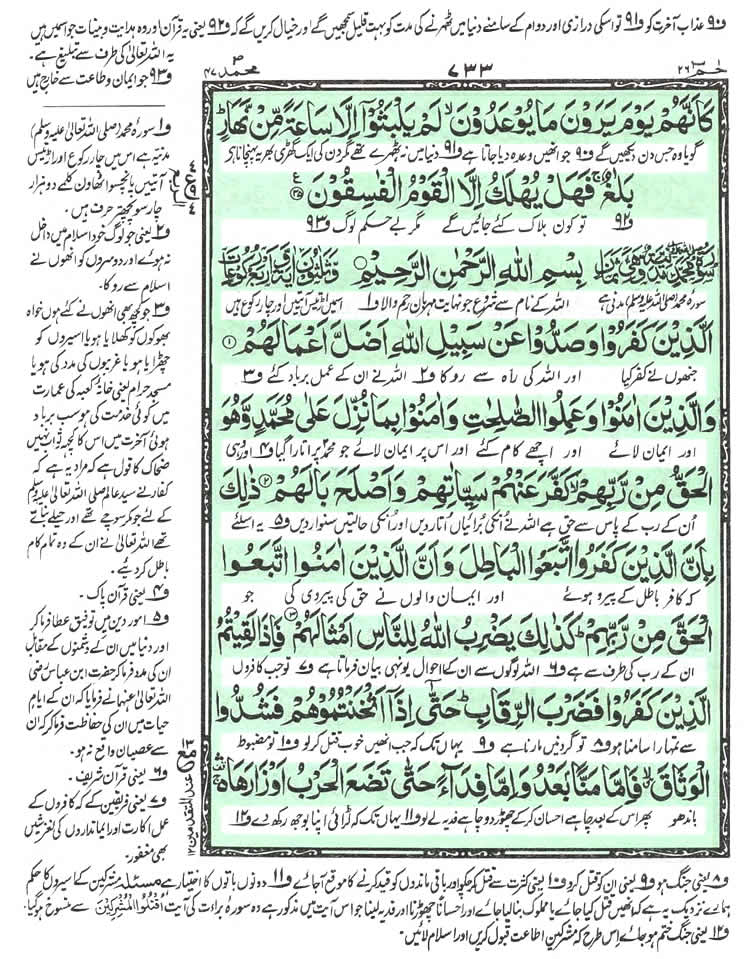 ف۹۰ عذاب آخرت کو ف۹۱ تو اسکی درازی اور دوام کے سامنے دنیا میں ٹھہرنے کی مدت کو بہت قلیل سمجھیں گے اور خیال کریں گے کہ ف۹۲ یعنی یہ قرآن اور وہ ہدایت و بینات جو اسمیں ہیں
یہ اللہ تعالیٰ کی طرف سے تبلیغ ہے۔
ف۹۳ جو ایمان و طاعت سے خارج ہیں
حٰمٓ ۲۶
۷۳۳
محمد ۴۷
كَاَنَّهُمْ يَوْمَ يَرَوْنَ مَا يُوْعَدُوْنَ ۙ لَمْ يَلْبَثُوْۤا اِلَّا سَاعَةً مِّنْ نَّهَارٍ ؕ
گویا وہ جس دن دیکھیں گے ف۹۰ جو انھیں وعدہ دیا جاتا ہے ف۹۱ دنیا میں نہ ٹھہرے تھے مگر دن کی ایک گھڑی بھر یہ پہنچانا ہے
بَلٰغٌ ۚ فَهَلْ يُهْلَكُ اِلَّا الْقَوْمُ الْفٰسِقُوْنَ
ف۹۲ تو کون ہلاک کئے جائیں گے مگر بے حکم لوگ ف۹۳
بِسْمِ اللّٰهِ الرَّحْمٰنِ الرَّحِيْمِ
سورہ محمد (صلی اللہ علیہ وسلم) مدنی ہے اللہ کے نام سے شروع جو نہایت مہربان رحم والا ف۱ اسمیں اڑتیس آیتیں اور چار رکوع ہیں
اَلَّذِيْنَ كَفَرُوْا وَصَدُّوْا عَنْ سَبِيْلِ اللّٰهِ اَضَلَّ اَعْمَالَهُمْ ۱
جنھوں نے کفر کیا اور اللہ کی راہ سے روکا ف۲ اللہ نے ان کے عمل برباد کئے ف۳
وَالَّذِيْنَ اٰمَنُوْا وَعَمِلُوا الصّٰلِحٰتِ وَاٰمَنُوْا بِمَا نُزِّلَ عَلٰى مُحَمَّدٍ وَّهُوَ
اور ایمان لائے اور اچھے کام کئے اور اس پر ایمان لائے جو محمد پر اتارا گیا ف۴ اور وہی
الْحَقُّ مِنْ رَّبِّهِمْ ۙ كَفَّرَ عَنْهُمْ سَيِّاٰتِهِمْ وَاَصْلَحَ بَالَهُمْ ۲ ذٰلِكَ
اُن کے رب کے پاس سے حق ہے اللہ نے اُنکی بُرائیاں اُتار دیں اور اُنکی حالتیں سنوار دیں ف۵ یہ اسلئے
بِاَنَّ الَّذِيْنَ كَفَرُوا اتَّبَعُوا الْبَاطِلَ وَاَنَّ الَّذِيْنَ اٰمَنُوا اتَّبَعُوا
کہ کافر باطل کے پیرو ہوئے اور ایمان والوں نے حق کی پیروی کی جو
الْحَقَّ مِنْ رَّبِّهِمْ ؕ كَذٰلِكَ يَضْرِبُ اللّٰهُ لِلنَّاسِ اَمْثَالَهُمْ ۳ فَاِذَا لَقِيْتُمُ
ان کے رب کی طرف سے ہے ف۶ اللہ لوگوں سے ان کے احوال یونہی بیان فرماتا ہے ف۷ تو جب کافروں
الَّذِيْنَ كَفَرُوْا فَضَرْبَ الرِّقَابِ ؕ حَتّٰۤى اِذَاۤ اَثْخَنْتُمُوْهُمْ فَشُدُّوا
سے تمہارا سامنا ہو ف۸ تو گردنیں مارنا ہے ف۹ یہاں تک کہ جب انھیں خوب قتل کرلو ف۱۰ تو مضبوط
الْوَثَاقَ ۙ فَاِمَّا مَنًّۢا بَعْدُ وَاِمَّا فِدَآءً حَتّٰى تَضَعَ الْحَرْبُ اَوْزَارَهَا
باندھو پھر اس کے بعد چاہے احسان کرکے چھوڑ دو چاہے فدیہ لے لو ف۱۱ یہاں تک کہ لڑائی اپنا بوجھ رکھ دے ف۱۲
ف۱ سورۂ محمد (صلی اللہ تعالیٰ علیہ وسلم)
مدنیہ ہے اس میں چار رکوع اور اڑتیس
آیتیں پانچسو اٹھاون کلمے دو ہزار
چار سو پچھتر حرف ہیں۔
ف۲ یعنی جو لوگ خود اسلام میں داخل
نہ ہوئے اور دوسروں کو انھوں نے
اسلام سے روکا۔
ف۳ جو کچھ بھی انھوں نے کئے ہوں خواہ
بھوکوں کو کھلایا ہو یا اسیروں کو
چھڑایا ہو یا غریبوں کی مدد کی ہو یا
مسجد حرام یعنی خانۂ کعبہ کی عمارت
میں کوئی خدمت کی ہو سب برباد
ہوئی آخرت میں اس کا کچھ ثواب نہیں
ضحاک کا قول ہے کہ مراد یہ ہے کہ
کفار نے سید عالم صلی اللہ تعالیٰ علیہ وسلم
کے لئے جو مکر سوچے تھے اور حیلے بنائے
تھے اللہ تعالیٰ نے ان کے وہ تمام کام
باطل کردیے۔
ف۴ یعنی قرآن پاک۔
ف۵ امور دین میں توفیق عطا فرما کر
اور دنیا میں ان کے دشمنوں کے مقابل
ان کی مدد فرما کر حضرت ابن عباس رضی
اللہ تعالیٰ عنہما نے فرمایا کہ ان کے ایام
حیات میں ان کی حفاظت فرما کر کہ ان
سے عصیان واقع نہ ہو۔
ف۶ یعنی قرآن شریف۔
ف۷ یعنی فریقین کے کہ کافروں کے
عمل اکارت اور ایمانداروں کی لغزشیں
بھی مغفور۔
ف۸ یعنی جنگ ہو ف۹ یعنی ان کو قتل کرو ف۱۰ یعنی کثرت سے قتل کر چکو اور باقی ماندوں کو قید کرنے کا موقع آجائے ف۱۱ دونوں باتوں کا اختیار ہے مسئلہ مشرکین کے اسیروں کا حکم
ہمارے نزدیک یہ ہے کہ انھیں قتل کیا جائے یا مملوک بنالیا جائے اور احساناً چھوڑنا اور فدیہ لینا جو اس آیت میں مذکور ہے وہ سورۂ براءت کی آیت اُقْتُلُوا الْمُشْرِكِيْنَ سے منسوخ ہوگیا۔
ف۱۲ یعنی جنگ ختم ہوجائے اس طرح کہ مشرکین اطاعت قبول کریں اور اسلام لائیں۔